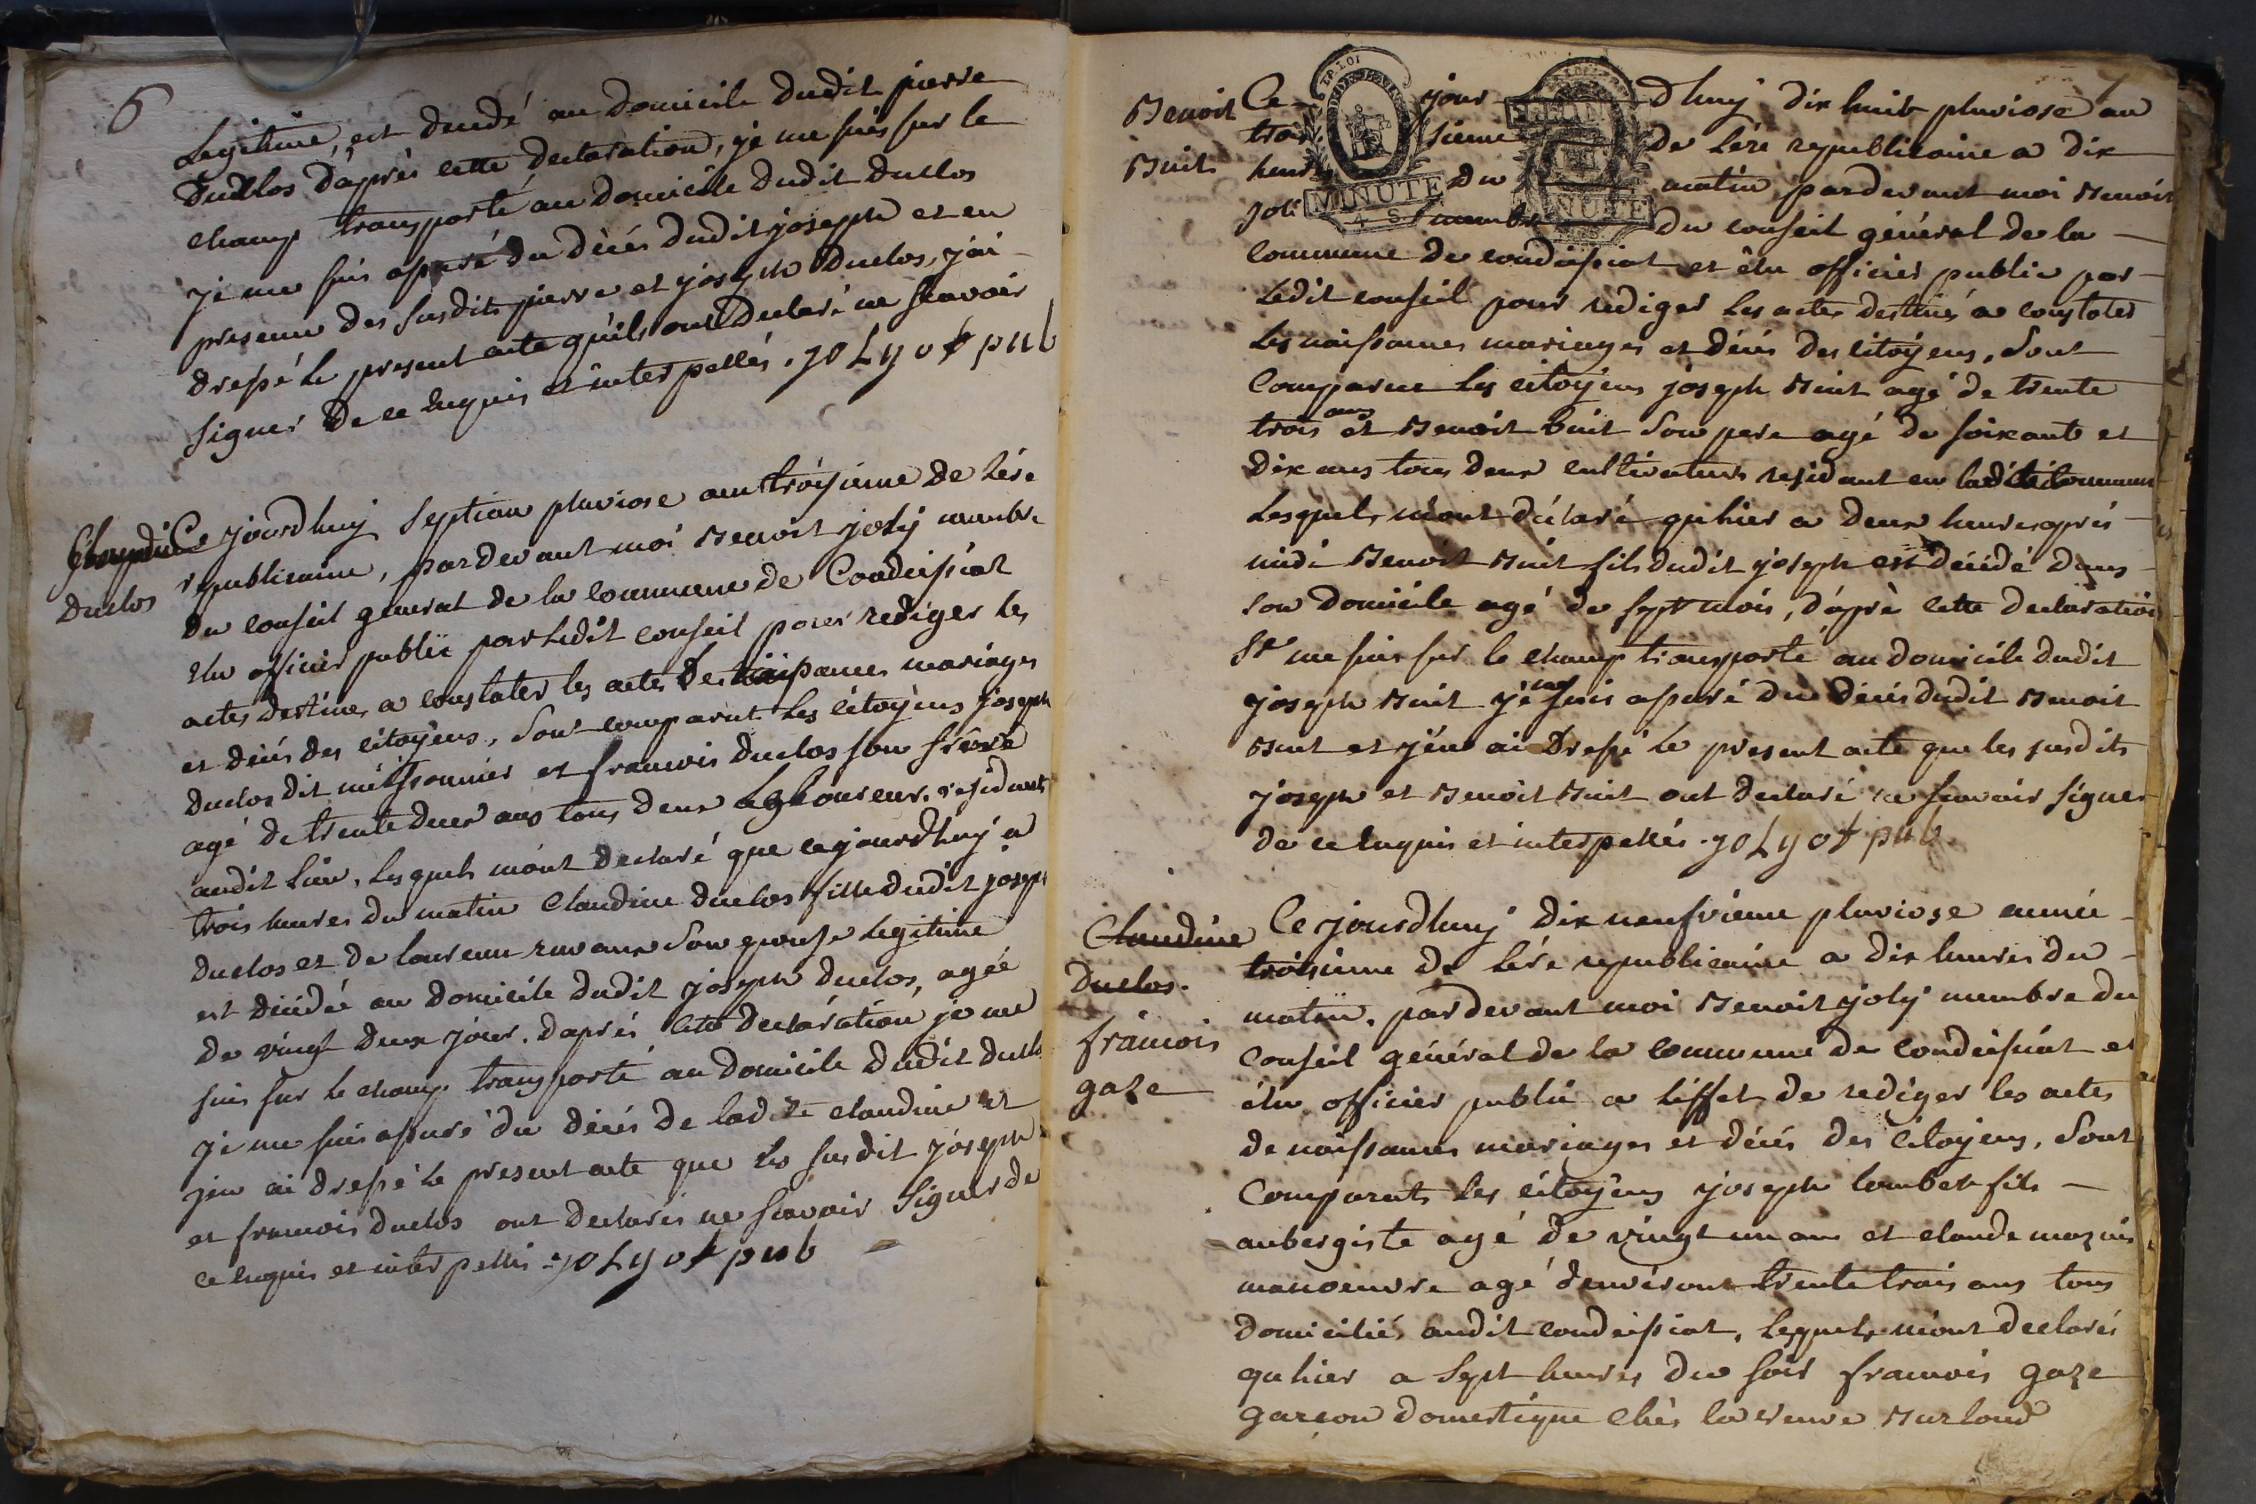 6
Legitime, est decedé au domicile dudit pierre
Duclos d'aprés cette declaration, je me suis sur le
champ transporté au domicile dudit duclos
je me suis assuré du décés dudit joseph et en
presence des susdits pierre et joseph Duclos, j'ai
dressé le present acte qu'ils ont declaré ne scavoir
signer de ce enquis et interpellés. JOLY of pub
Claudine
Duclos
Ce jourdhuy septieme pluviose an troisieme de lére
republicaine, pardevant moi Benoit joly membre
du conseil general de la commune de Condeissiat
elu officier public par ledit conseil pour rediger les
actes destines a constater les actes de naissances mariages
et décés des citoyens, sont comparut les citoyens joseph
duclos dit meissonnier et francois duclos son frére
agé de trente deux ans tous deux laboureurs residants
audit lieu, lesquels m'ont declaré que cejourdhuy a
trois heures du matin Claudine duclos fille dudit joseph
duclos et de laurence son epouse legitime
est décédée au domicile dudit joseph duclos, agée
de vingt deux jour. d'aprés cette declaration je me
suis sur le champ transporté au domicile dudit duclos
je me suis assuré du décés de ladite claudine et
j'en ai dressé le present acte que les susdit joseph
et francois duclos ont declarés ne scavoir signer de
ce enquis et interpellés JOLY of pub
7
Benoit
Buit
Ce jour dhuy dix huit pluviose an
troisieme de lére republicaine a dix
heures du matin pardevant moi Benoit
joli membre du conseil général de la
MINUTE
4 S
MINUTE
commune de condeissiat et élu officier public par
ledit conseil pour rediger les actes destinés a constater
les naissances mariages et décés des citoyens, sont
comparue les citoyens joseph Buit agé de trente
trois ans et Benoit buit son pere agé de soixante et
dix ans tous deux cultivateurs residant en ladite commune
lesquels m'ont déclaré qu'hier a deux heures aprés
midi Benoit Buit fils dudit joseph est décédé dans
son domicile agé de sept mois, d'aprè cette declaration
Je me suis sur le champ transporté au domicile dudit
joseph Buit je me suis assuré du décés dudit Benoit
Buit et j'en ai dressé le present acte que les susdits
joseph et Benoit Buit ont declaré ne scavoir signer
de ce enquis et interpellés. JOLY of pub
Claudine
Duclos.
francois
gaze
Ce jourdhuy dix neufvieme pluviose année
troisieme de lére republicaine a dix heures du
matin, pardevant moi Benoit joly membre du
conseil général de la commune de condeissiat et
élu officier public a l'effet de rediger les actes
de naissances mariages et décés des citoyens, sont
comparuts les citoyens joseph combet fils
aubergiste agé de vingt un ans et claude
manoeuvre agé d'environt trente trois ans tous
domiciliés audit condeissiat, lesquels m'ont declarés
qu'hier a sept heures du soir francois gaze
garçon domestique chés la veuve Burloud